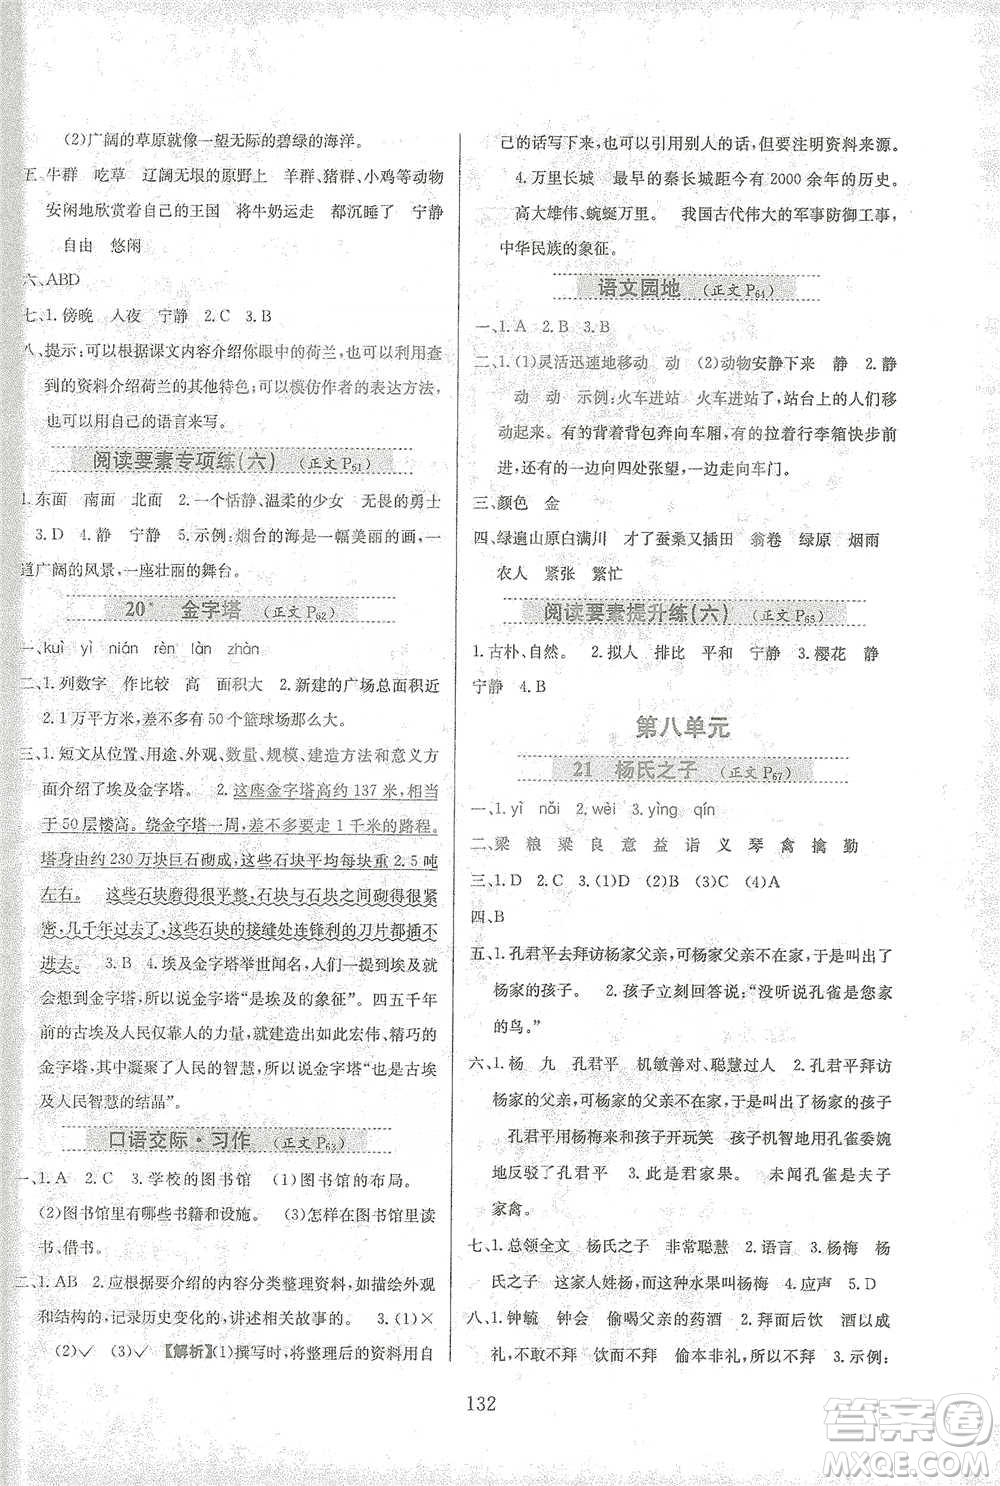 (2)广阔的草原就像一望无际的碧绿的海洋。
五、牛群 吃草 辽阔无垠的原野上 羊群、猪群、小鸡等动物
安闲地欣赏着自己的王国 将牛奶运走 都沉睡了 宁静
自由 悠闲
六、ABD
七、1.傍晚 人夜 宁静 2.C 3.B
八、提示:可以根据课文内容介绍你眼中的荷兰,也可以利用查
到的资料介绍荷兰的其他特色;可以模仿作者的表达方法,
也可以用自己的语言来写。
阅读要素专项练(六) (正文 P61)
1.东面 南面 北面 2.一个恬静、温柔的少女 无畏的勇士
3.D 4.静 宁静 5.示例:烟台的海是一幅美丽的画,是一
道广阔的风景,一座壮丽的舞台。
20* 金字塔 (正文 P62)
一、kuì yì nián rèn làn zhàn
二、1.列数字 作比较 高 面积大 2.新建的广场总面积近
2.1万平方米,差不多有5个篮球场那么大。
三、1.短文从位置、用途、外观、数量、规模、建造方法和意义方
面介绍了埃及金字塔。 2.这座金字塔高约 137 米,相当
于50层楼高。绕金字塔一周,差不多要走 1 千米的路程。
塔身由约 230 万块巨石砌成,这些石块平均每块重 2.5 吨
左右。 这些石块磨得很平整,石块与石块之间砌合得很紧
密,几千年过去了,这些石块的接缝处连锋利的刀片都插不
进去。 3.B 4.埃及金字塔举世闻名,人们一提到埃及就
会想到金字塔,所以说金字塔“是埃及的象征”。四五千年
前的古埃及人民仅靠人的力量,就建造出如此宏伟、精巧的
金字塔,其中凝聚了人民的智慧,所以说金字塔“是古埃
及人民智慧的结晶”。
口语交际·习作 (正文 P63)
一、1.A 2.A 3.学校的图书馆 (1)图书馆的布局。
(2)图书馆里有哪些书籍和设施。 (3)怎样在图书馆读
书、借书。
二、1.AB 2.应根据要介绍的内容分类整理资料,如描绘外观
和结构的,记录历史变化的,讲述相关故事的。 3.(1)×
(2)✓ (3)✓ 【解析】(1)撰写时,将整理后的资料用自
己的话写下来,如果引用别人的话,要注明资料来源。
4.万里长城 最早的秦长城距今有 2000 余年的历史。
高大雄伟、蜿蜒万里。 我国古代伟大的军事防御工事,
中华民族的象征。
语文园地 (正文 P64)
一、1.A 2.B 3.B
二、1.(1)灵活迅速地移动 动 (2)动物安静下来 静 2.静
动 动 示例:火车进站 火车进站了,站台上的人们移
动起来。有的背着背包奔向车厢,有的拉着行李箱快步前
进,还有的一边向四处张望,一边走向车门。
三、颜色 金
四、绿遍山原白满川 才了蚕桑又插田 翁卷 绿原 烟雨
农人 紧张 繁忙
阅读要素提升练(六) (正文 P65)
1.古朴、自然。 2.拟人 排比 平和 宁静 3.樱花 静
宁静 4.B
第八单元
21 杨氏之子 (正文 P67)
一、1.yì nǎi 2.wèi 3.yìng qín
二、梁 粮 梁 良 意 益 诣 义 琴 禽 擒 勤
三、1.D 2.C 3.(1)D (2)B (3)C (4)A
四、B
五、1.孔君平去拜访杨家父亲,可杨家父亲不在家,于是叫出了
杨家的孩子。 2.孩子立刻回答说:“没听说孔雀是您家
的鸟。”
六、1.杨 九 孔君平 机敏善对、聪慧过人 2.孔君平拜访
杨家的父亲 可杨家的父亲不在家,于是叫出了杨家的孩子
孔君平用杨梅来和孩子开玩笑 孩子机智地用孔雀委婉
地反驳了孔君平 3.此是君家果。 未闻孔雀是夫子
家禽。
七、1.总领全文 杨氏之子 非常聪慧 2.语言 3.杨梅 杨
氏子姓杨 这家人姓杨,而这种水果叫杨梅 4.应声 5.D
八、1.钟毓 钟会 偷喝父亲的药酒 2.拜而后饮 酒以成
礼,不敢不拜 饮而不拜 偷本非礼,所以不拜 3.示例:
132
答案卷
MXQE.COM